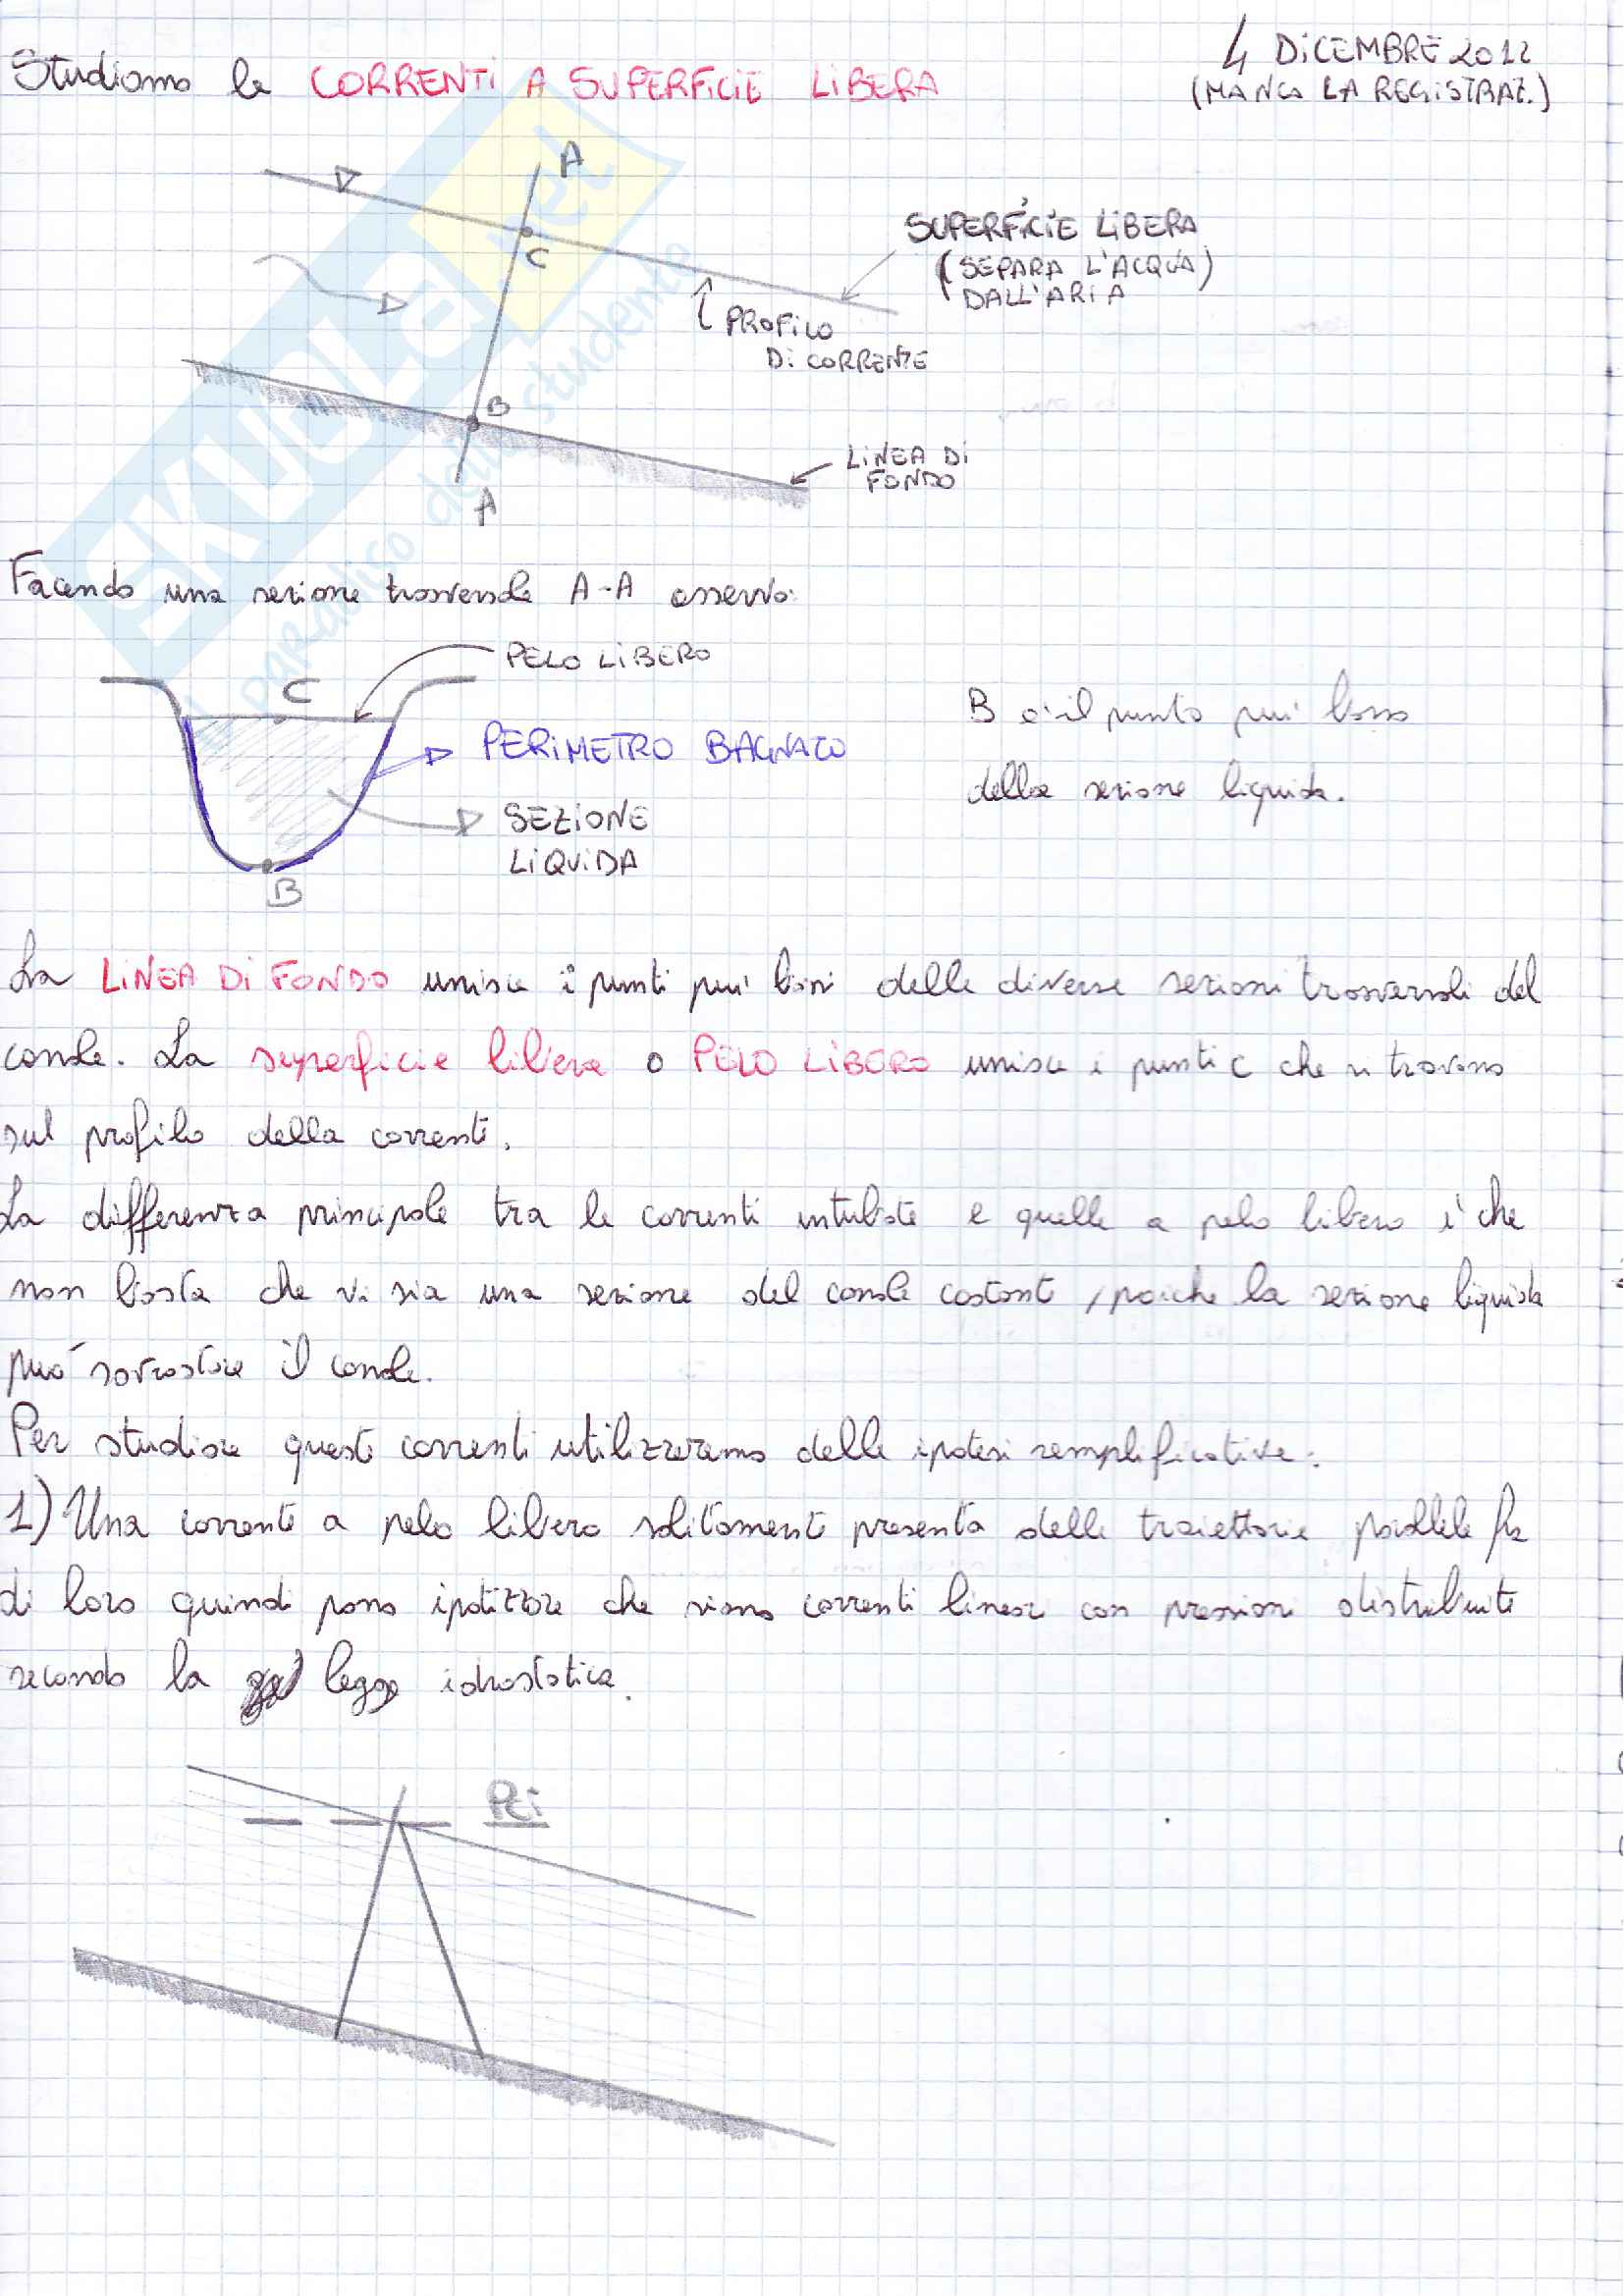 4 DICEMBRE 2012
(MANCA LA REGISTRAZ.)
Studiamo le CORRENTI A SUPERFICIE LIBERA
A
C
SUPERFICIE LIBERA
(SEPARA L'ACQUA)
DALL'ARIA
PROFILO
DI CORRENTE
B
LINEA DI
FONDO
A
SKUOLA.net
il paradiso dello studente
Facendo una sezione trasversale A-A osservo:
PELO LIBERO
C
PERIMETRO BAGNATO
SEZIONE
LIQUIDA
B
B è il punto più basso
della sezione liquida.
La LINEA DI FONDO unisce i punti più bassi delle diverse sezioni trasversali del
canale. La superficie libera o PELO LIBERO unisce i punti C che si trovano
sul profilo della corrente.
La differenza principale tra le correnti intubate e quelle a pelo libero è che
non basta che vi sia una sezione del canale costante, poiché la sezione liquida
può sovrastare il canale.
Per studiare queste correnti utilizzeremo delle ipotesi semplificative:
1) Una corrente a pelo libero solitamente presenta delle traiettorie parallele fra
di loro quindi posso ipotizzare che siano correnti lineari con pressioni distribuite
secondo la legge idrostatica.
Pci